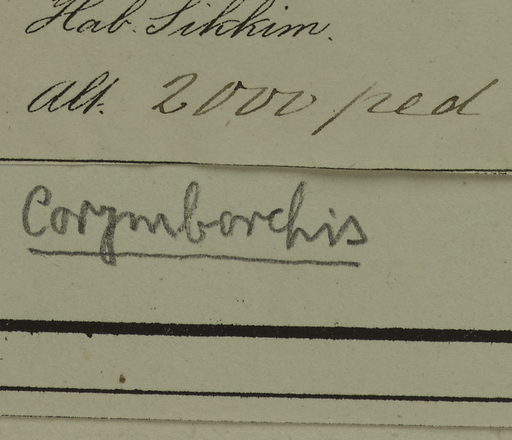 Hab. Sikkim.
Alt. 2000 ped
Corymborchis